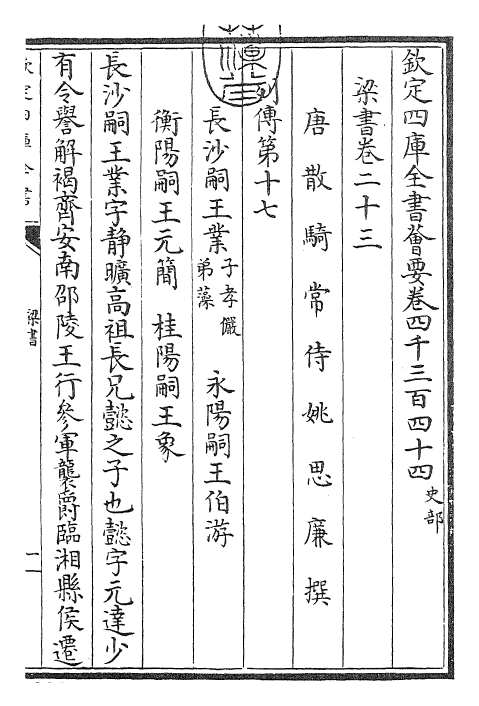 欽定四庫全書薈要卷四千三百四十四史部
梁書卷二十三
唐散騎常侍姚思廉撰
列傳第十七
長沙嗣王業子孝儼弟藻 永陽嗣王伯游
衡陽嗣王元簡 桂陽嗣王象
長沙嗣王業字静曠高祖長兄懿之子也懿字元達少
有令譽解褐齊安南邵陵王行參軍襲爵臨湘縣侯遷
梁書
一